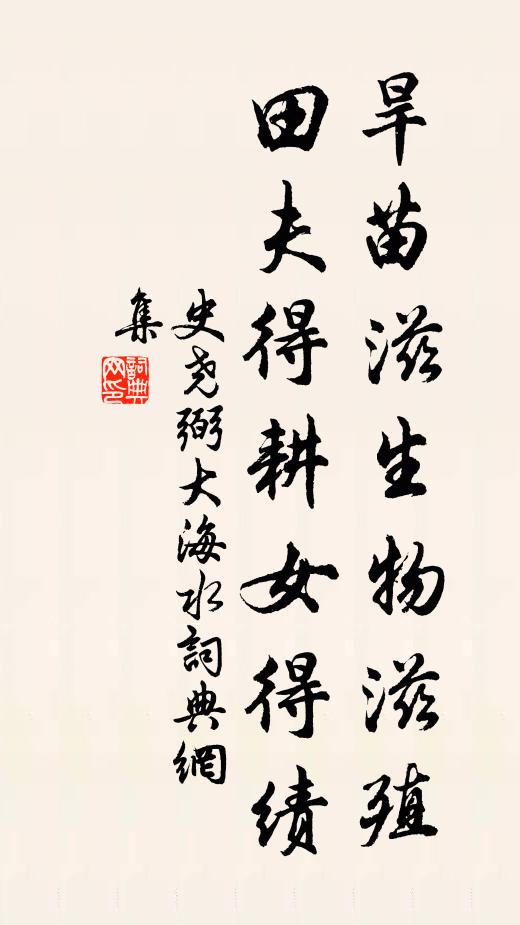 旱苗滋生物滋殖
田夫得耕女得績
史尧弼大海水詞典網
集
詞典
网印